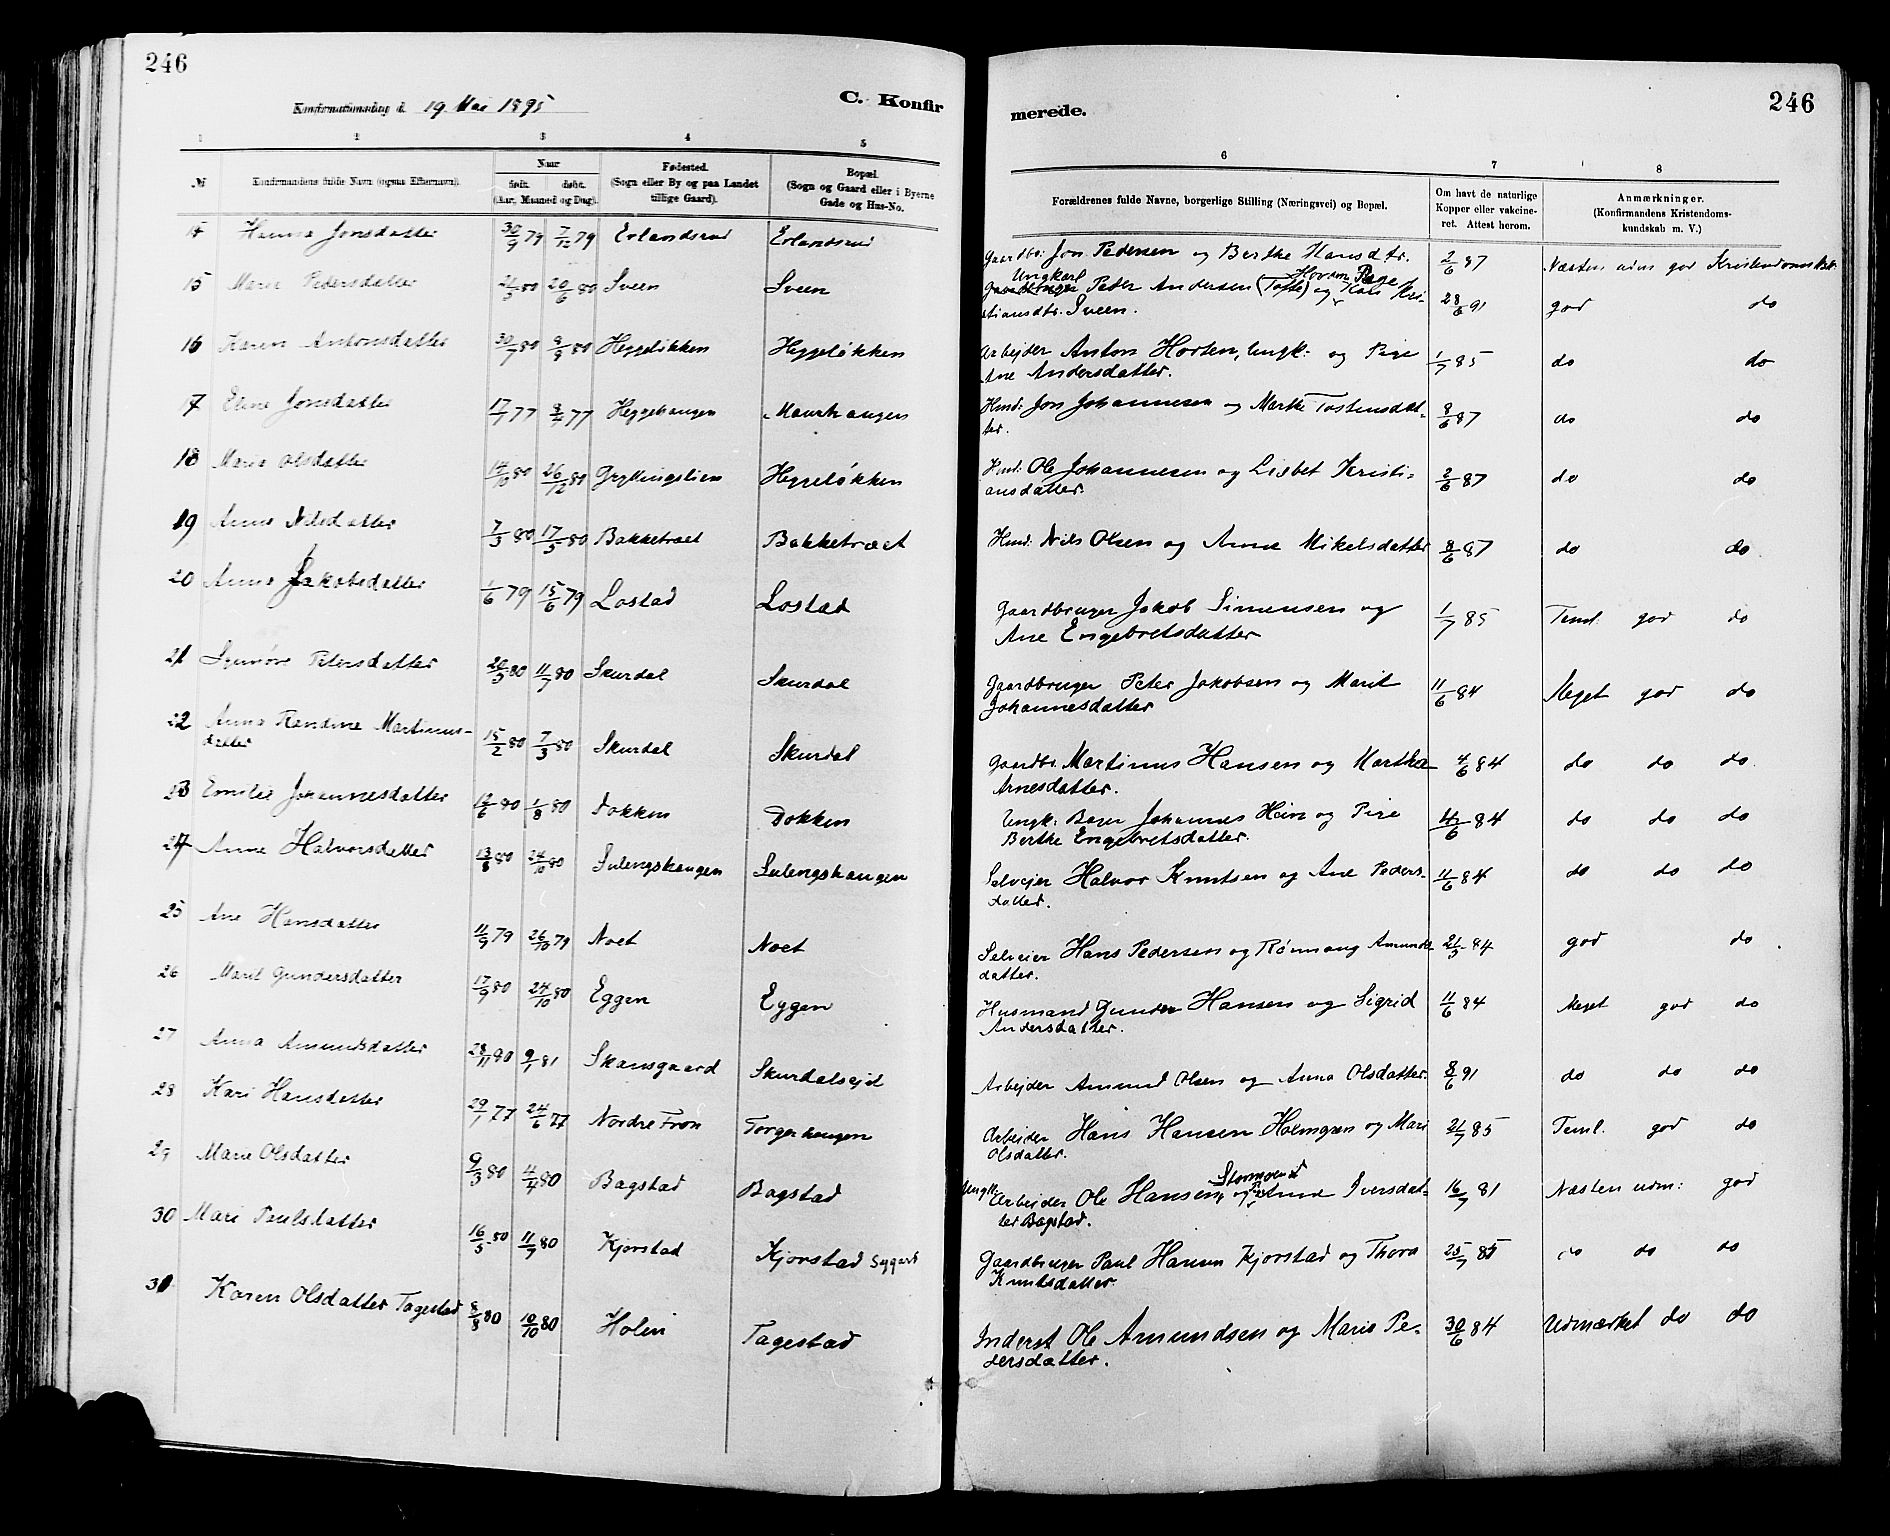 246
Konfirmationsdag d. 19. Mai 1895
C. Konfir
merede.
246
1 2 3 4 5
6 7 8
№ Konfirmandens fulde Navn (ogsaa Efternavn). Naar født. døbt. (Aar, Maaned og Dag). Fødested. (Sogn eller By og paa Landet tillige Gaard). Bopæl. (Sogn og Gaard eller i Byerne Gade og Hus-No.
Forældrenes fulde Navne, borgerlige Stilling (Næringsvei) og Bopæl. Om havt de naturlige Kopper eller vakcineret. Attest herom. Anmærkninger. (Konfirmandens Kristendomskundskab m. V.)
14 Hanna Jonsdatter 30/9 79 7/12 79 Erlandsrud Erlandsrud Gaardbr. Jon Pedersen og Berthe Hansdtr. 2/6 87 Næsten udm god
15 Marie Pedersdatter 21/5 80 20/6 80 Sveen Sveen Ungkarl Peter Andersen (Tofte) og Pige Kari Kri-
stiansdtr. Sveen. 28/6 91 god do
16 Karen Antonsdatter 30/7 80 9/9 80 Heggeløkken Heggeløkken Arbejder Anton Horten, Ungk: og Pige
Ane Andersdatter. 1/7 85 do do
17 Eline Jonsdatter 17/7 77 77 Heggehaugen Maurhaugen Hmd: Jon Johannesen og Marthe Tostensdat-
ter. 8/6 87 do do
18 Maria Olsdatter 14/10 80 26/12 80 Gryttingslien Heggeløkken Hmd: Ole Johannesen og Lisbet Kristi-
ansdatter. 2/6 87 do do
19 Anne Nilsdatter 7/3 80 17/5 80 Bakketræet Bakketræet Hmd: Nils Olsen og Anne Mikelsdatter 8/6 87 do do
20 Anne Jakobsdatter 1/6 79 15/6 79 Lostad Lostad Gaardbruger Jakob Simensen og
Ane Engebretsdatter 1/7 85 Teml. god do
21 Synnøve Petersdatter 20/5 80 11/7 80 Skurdal Skurdal Gaardbruger Peter Jakobsen og Marit
Johannesdatter 11/6 84 Meget god do
22 Anna Randine Martinus-
datter 15/2 80 7/3 80 Skurdal Skurdal Gaardbr. Martinus Hansen og Marthe
Arnesdatter. 4/6 84 do do do.
23 Emilie Johannesdatter 12/6 80 1/8 80 Dokken Dokken Ungk: Bager Johannes Hein og Pige
Berthe Engebretsdatter. 4/6 84 do do do
24 Anne Halvorsdatter 13/8 80 24/10 80 Sulengshaugen Sulengshaugen Selveier Halvor Knutsen og Ane Peders-
datter. 11/6 84 do do do
25 Ane Hansdatter 11/9 79 26/10 79 Noet Noet Selveier Hans Pedersen og Rønnaug Amunds
datter. 21/5 84 god do
26 Marit Gundersdatter 17/9 80 24/10 80 Eggen Eggen Husmand Gunder Hansen og Sigrid
Andersdatter. 11/6 84 Meget god do
27 Anna Amundsdatter 28/11 80 9/1 81 Skansgaard Skurdalsejd Arbejder Amund Olsen og Anna Olsdatter. 8/6 91 do do do
28 Kari Hansdatter 29/1 77 24/6 77 Nordre Fron Torgerhaugen Arbejder Hans Hansen Holmgren og Mari
Olsdatter. 21/7 85 Teml. god do
29 Marie Olsdatter 9/3 80 4/4 80 Bagstad Bagstad Ungk: Arbejder Ole Hansen og Anne Iversdat-
ter Bagstad. 16/7 81 Næsten udm: god
30 Mari Paulsdatter 16/5 80 11/7 80 Kjorstad Kjorstad Syg Gaardbruger Paul Hansen Kjorstad og Thora
Knutsdatter 25/7 85 do do do
31 Karen Olsdatter Tagestad 8/8 80 10/10 80 Holen Tagestad Inderst Ole Amundsen og Marie Pe-
dersdatter. 30/6 84 Udmærket do do